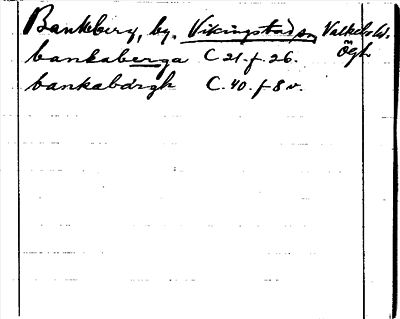 Bankeberg, by, Vikingstad sn Valkebo hd.
Ögtl
bankaberga C 21. f. 26.
bankabärgh C. 40. f 8 v.